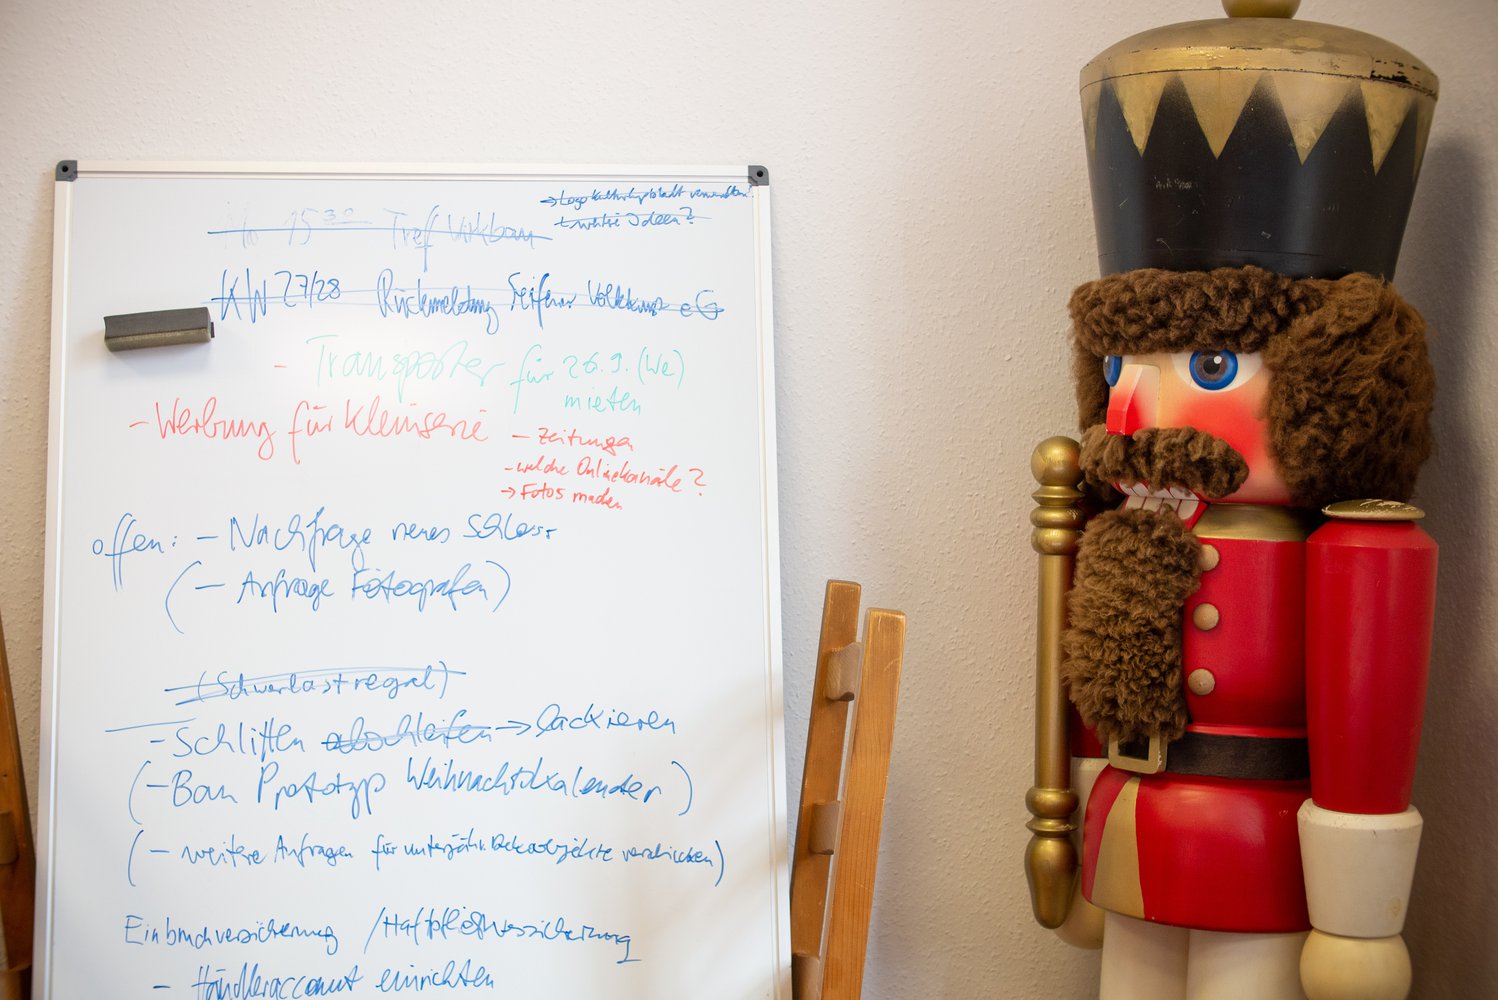 → Logo Kulturhptstadt verwenden?
+ weitere Ideen?
Mo 15³⁰ Treff
KW 27/28 Rückmeldung Seiffener Volkskunst eG
- Transporter für 26.9. (We)
mieten
- Werbung für Kleinserie
- Zeitungen
- welche Onlinekanäle?
→ Fotos machen
offen: - Nachfrage neues Schloss
(- Anfrage Fotografen)
- (Schwerlastregal)
- Schlitten abschleifen → lackieren
(- Bau Prototyp Weihnachtskalender)
(- weitere Anfragen für unterjähr. Dekoobjekte verschicken)
Einbruchversicherung / Haftpflichtversicherung
- Händleraccount einrichten